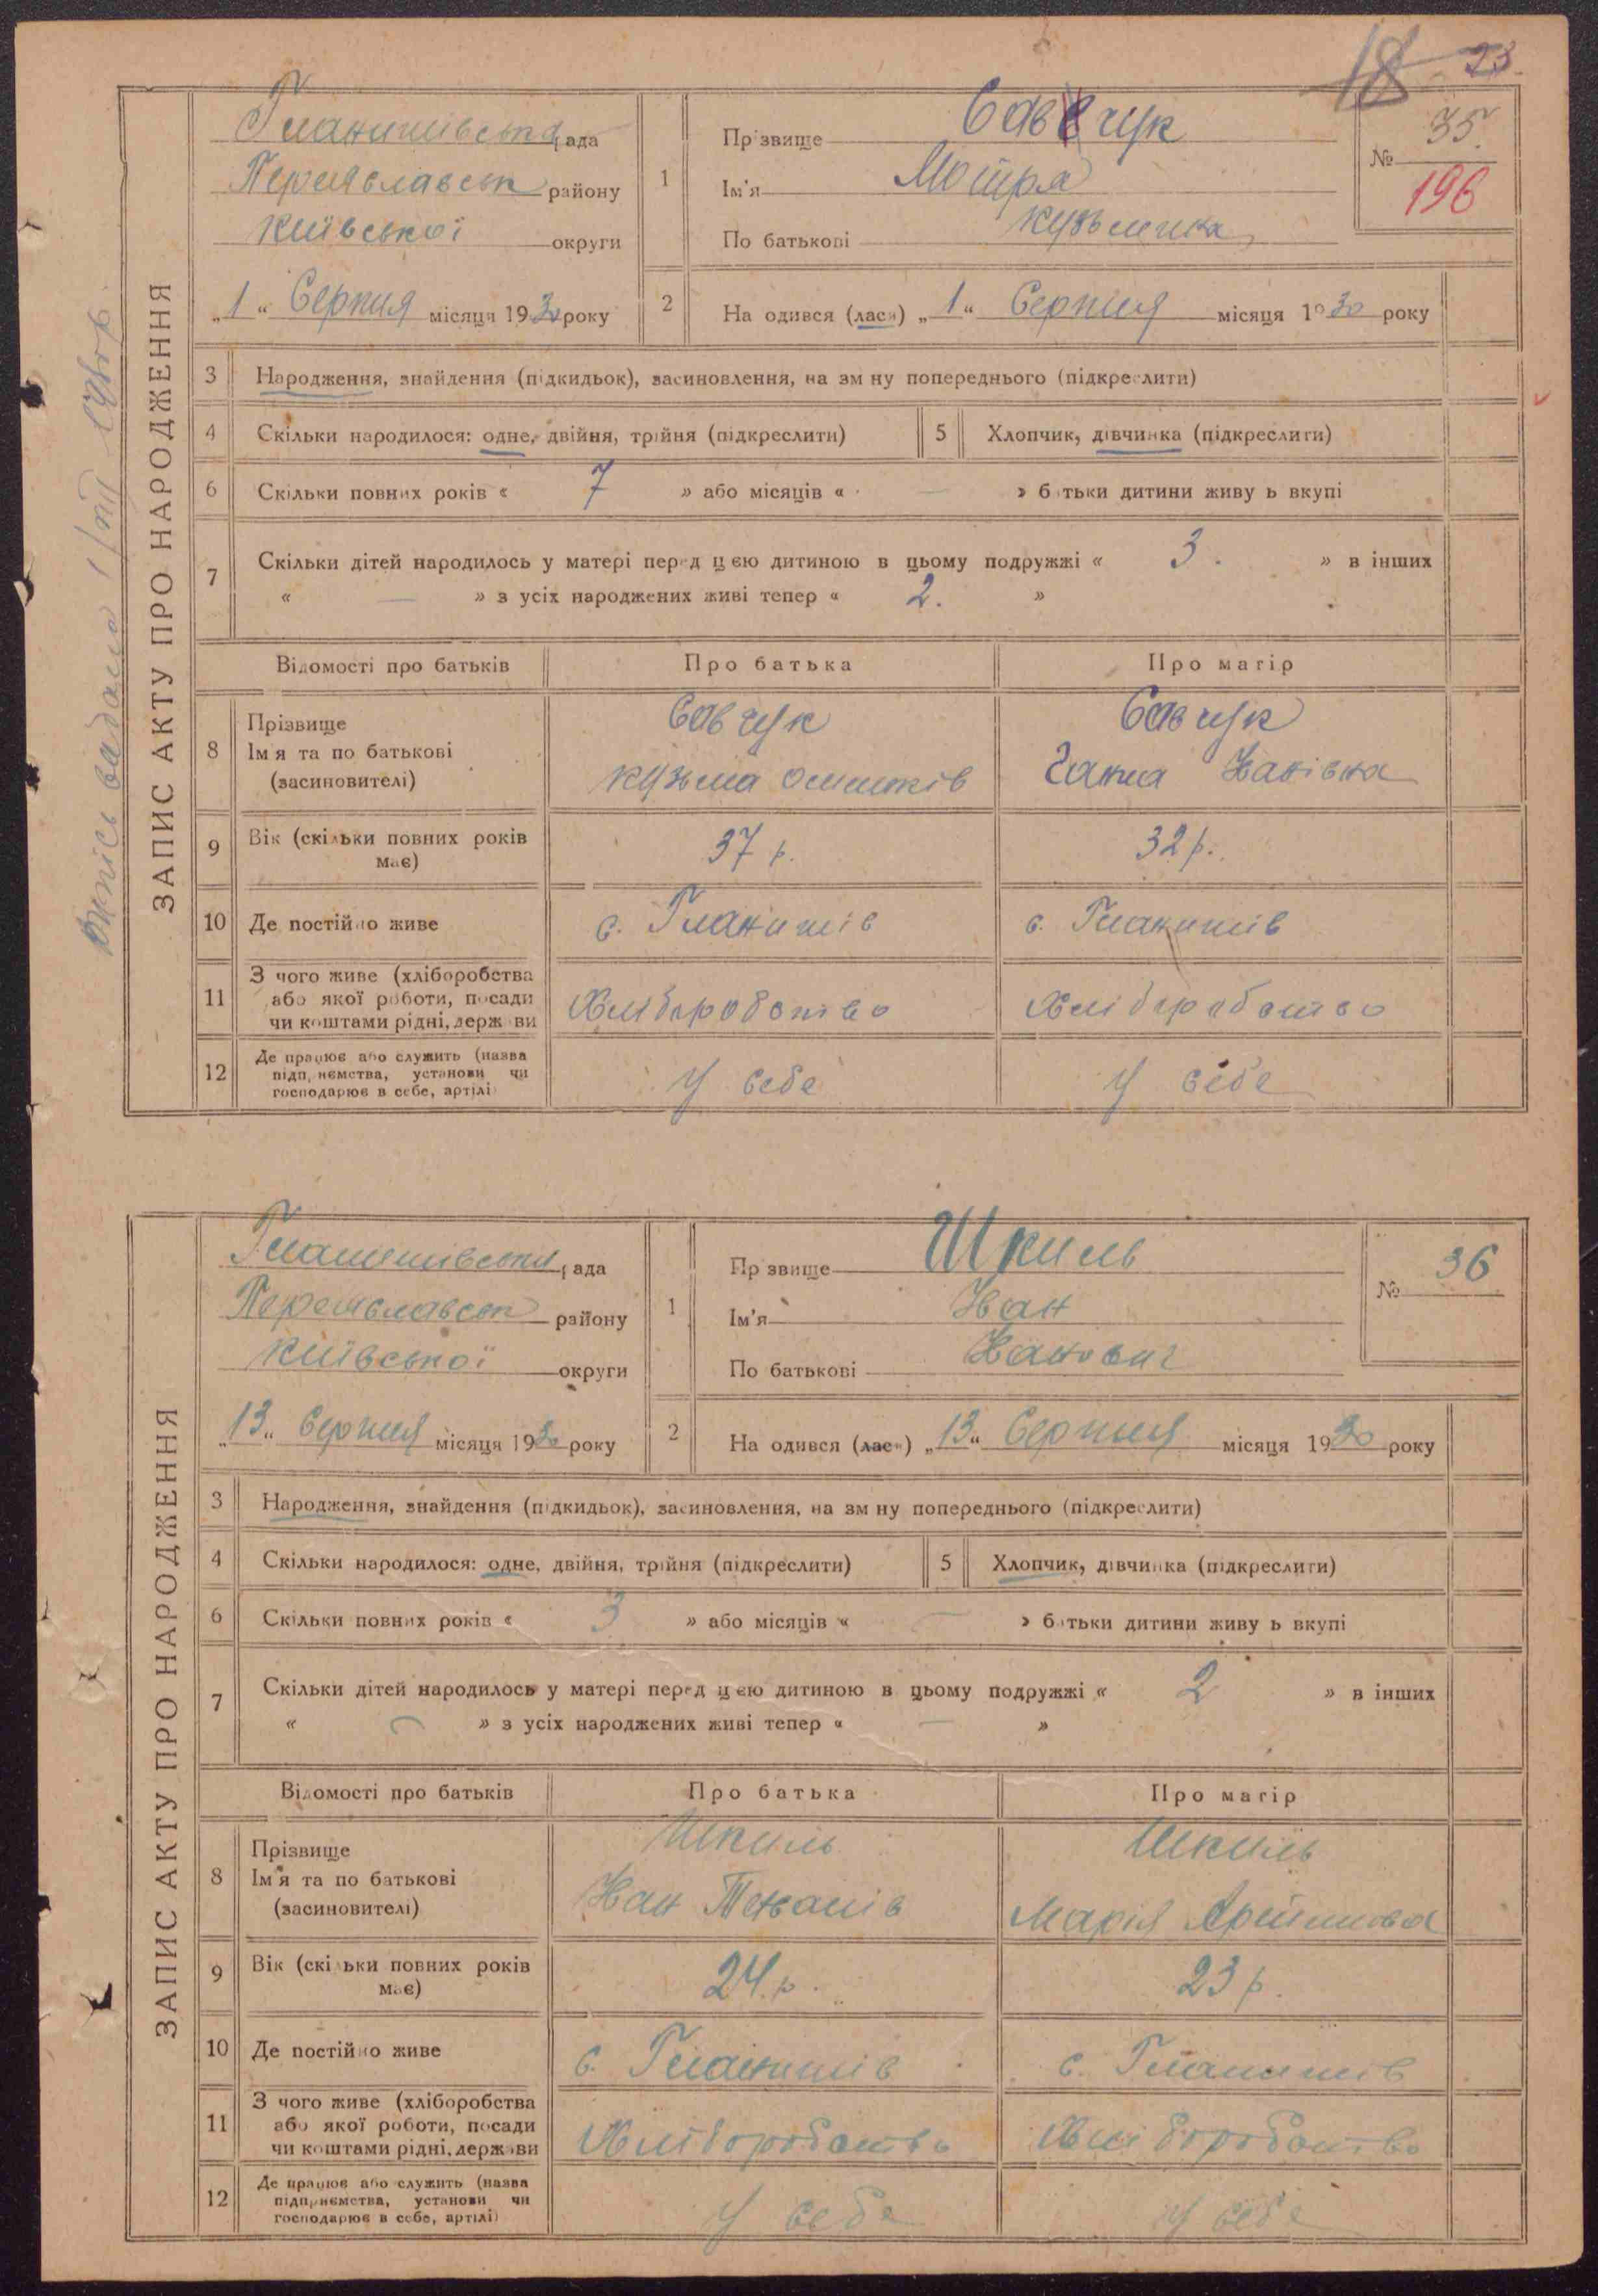 18 23
ЗАПИС АКТУ ПРО НАРОДЖЕННЯ
Гланишівська рада
Переяславськ району
Київської округи
„1“ Серпня місяця 1930 року
1 Прізвище Савчук
Ім'я Мотря
По батькові Кузьмівна
№ 35
196
2 На одився (лася) „1“ Серпня місяця 1930 року
3 Народження, знайдення (підкидьок), засиновлення, на зм ну попереднього (підкреслити)
4 Скільки народилося: одне, двійня, трійня (підкреслити) 5 Хлопчик, дівчинка (підкреслити)
6 Скільки повних років « 7 » або місяців « — » батьки дитини живу ь вкупі
7 Скільки дітей народилось у матері перед цією дитиною в цьому подружжі « 3. » в інших
« — » з усіх народжених живі тепер « 2. »
Відомості про батьків Про батька Про матір
8 Прізвище Савчук Савчук
Ім я та по батькові
(засиновителі) Кузьма Ганна Іванівна
9 Вік (скільки повних років має) 37 р. 32 р.
10 Де постійно живе с. Гланишів с. Гланишів
11 З чого живе (хліборобства
або якої роботи, посади
чи коштами рідні, держави Хліборобство Хліборобство
12 Де працює або служить (назва
підприємства, установи чи
господарює в себе, артілі) У себе У себе
ЗАПИС АКТУ ПРО НАРОДЖЕННЯ
Гланишівська рада
Переяславськ району
Київської округи
„13“ Серпня місяця 1930 року
1 Прізвище Шкиль
Ім'я Іван
По батькові Іванович
№ 36
2 На одився (лася) „13“ Серпня місяця 1930 року
3 Народження, знайдення (підкидьок), засиновлення, на зм ну попереднього (підкреслити)
4 Скільки народилося: одне, двійня, трійня (підкреслити) 5 Хлопчик, дівчинка (підкреслити)
6 Скільки повних років « 3 » або місяців « — » батьки дитини живу ь вкупі
7 Скільки дітей народилось у матері перед цією дитиною в цьому подружжі « 2 » в інших
« — » з усіх народжених живі тепер « — »
Відомості про батьків Про батька Про матір
8 Прізвище Шкиль Шкиль
Ім'я та по батькові
(засиновителі) Іван Марія
9 Вік (скільки повних років має) 24 р. 23 р.
10 Де постійно живе с. Гланишів с. Гланишів
11 З чого живе (хліборобства
або якої роботи, посади
чи коштами рідні, держави Хліборобство Хліборобство
12 Де працює або служить (назва
підприємства, установи чи
господарює в себе, артілі) У себе У себе